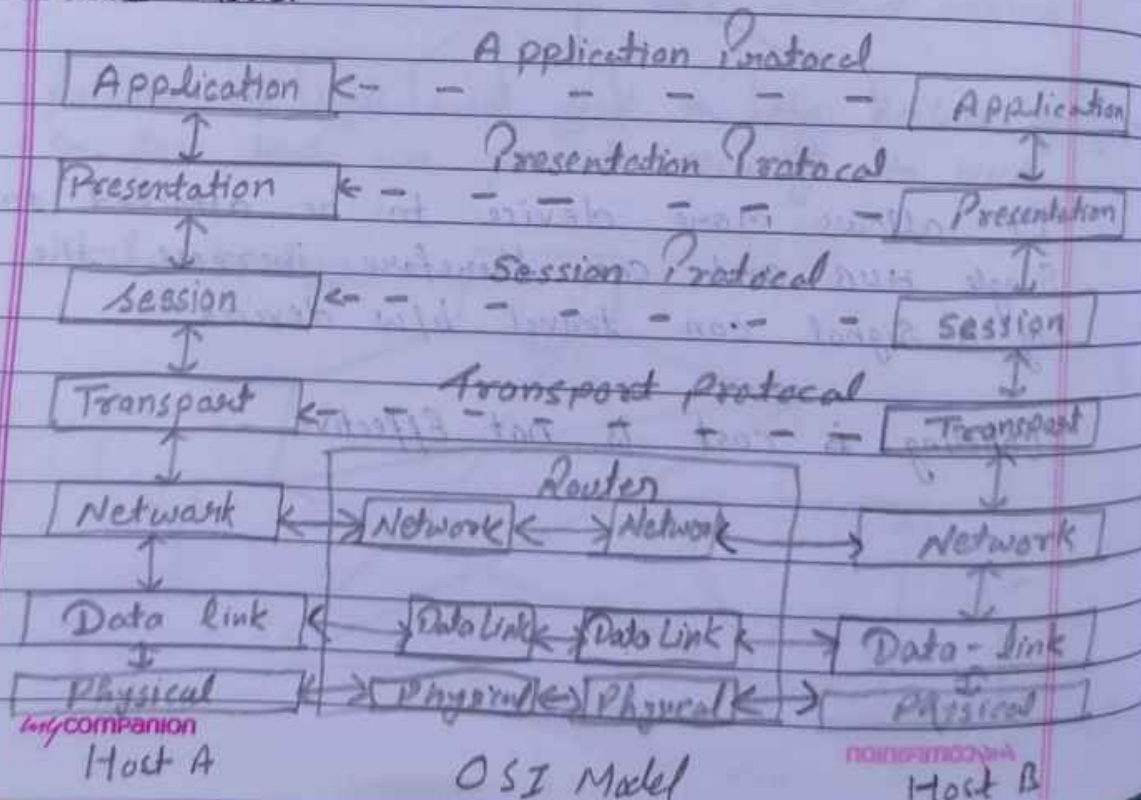 Application Protocal
Application Application
Presentation Protocal
Presentation Presentation
Session Protocal
Session Session
Transport Protocal
Transport Transport
Router
Network Network Network Network
Data link Data Link Data Link Data-link
Physical Physical Physical Physical
mycompanion
Host A OSI Model Host B